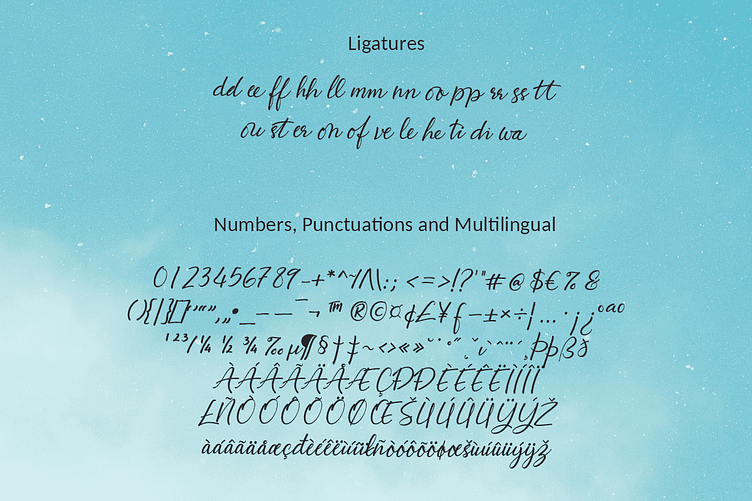 Ligatures
dd ee ff hh ll mm nn oo pp rr ss tt
ou st er on of ve le he ti di wa
Numbers, Punctuations and Multilingual
0123456789-+*^~/\|\:;<=>!?'"#@$€%&
(){|}[]''"",„•_–—¯¬™®©¤¢£¥ƒ−±×÷¦…·¡¿ºªº
¹²³/¼½¾‰µ¶§†‡~<>«»˘˙°˝ˇı`^¨´¸ÞþßÐ
ÀÁÂÃÄÅÆÇÐĐÈÉÊËÌÍÎÏ
ŁÑÒÓÔÕÖØŒŠÙÚÛÜŸÝŽ
àáâãäåæçđèéêëìíîïłñòóôõöøœšùúûüýÿž